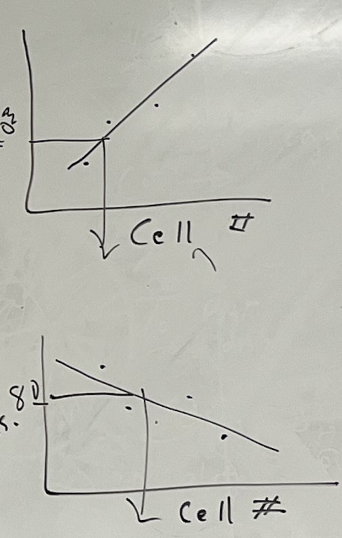 Cell #
80
s.
Cell #